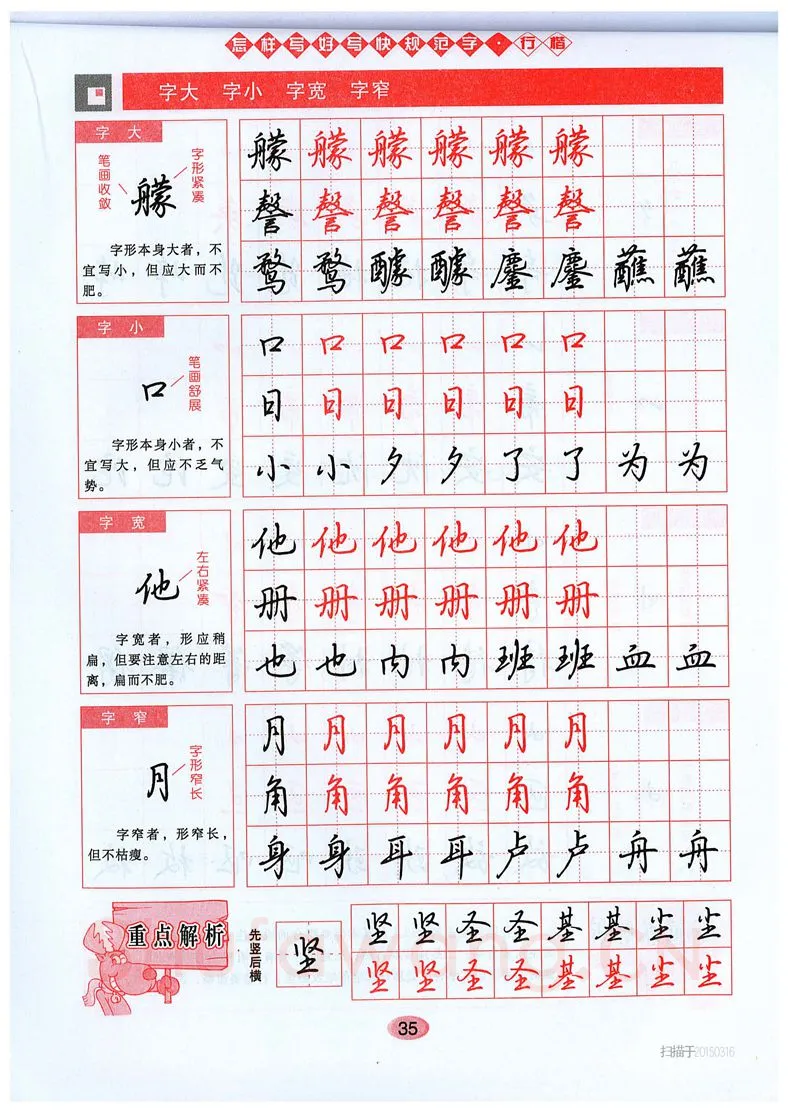 怎样写好写快规范字·行楷
字大 字小 字宽 字窄
字 大
笔画收敛
艨
字形紧凑
字形本身大者，不
宜写小，但应大而不
肥。
艨 艨 艨 艨 艨 艨
謦 謦 謦 謦 謦 謦
鹜 鹜 醵 醵 鏖 鏖 蘸 蘸
字 小
口
笔画舒展
字形本身小者，不
宜写大，但应不乏气
势。
口 口 口 口 口 口
日 日 日 日 日 日
小 小 夕 夕 了 了 为 为
字 宽
他
左右紧凑
字宽者，形应稍
扁，但要注意左右的距
离，扁而不肥。
他 他 他 他 他 他
册 册 册 册 册 册
也 也 内 内 班 班 血 血
字 窄
月
字形窄长
字窄者，形窄长，
但不枯瘦。
月 月 月 月 月 月
角 角 角 角 角 角
身 身 耳 耳 卢 卢 舟 舟
重点解析
先竖后横
坚
坚 坚 圣 圣 基 基 尘 尘
坚 坚 圣 圣 基 基 尘 尘
35
扫描于20150316